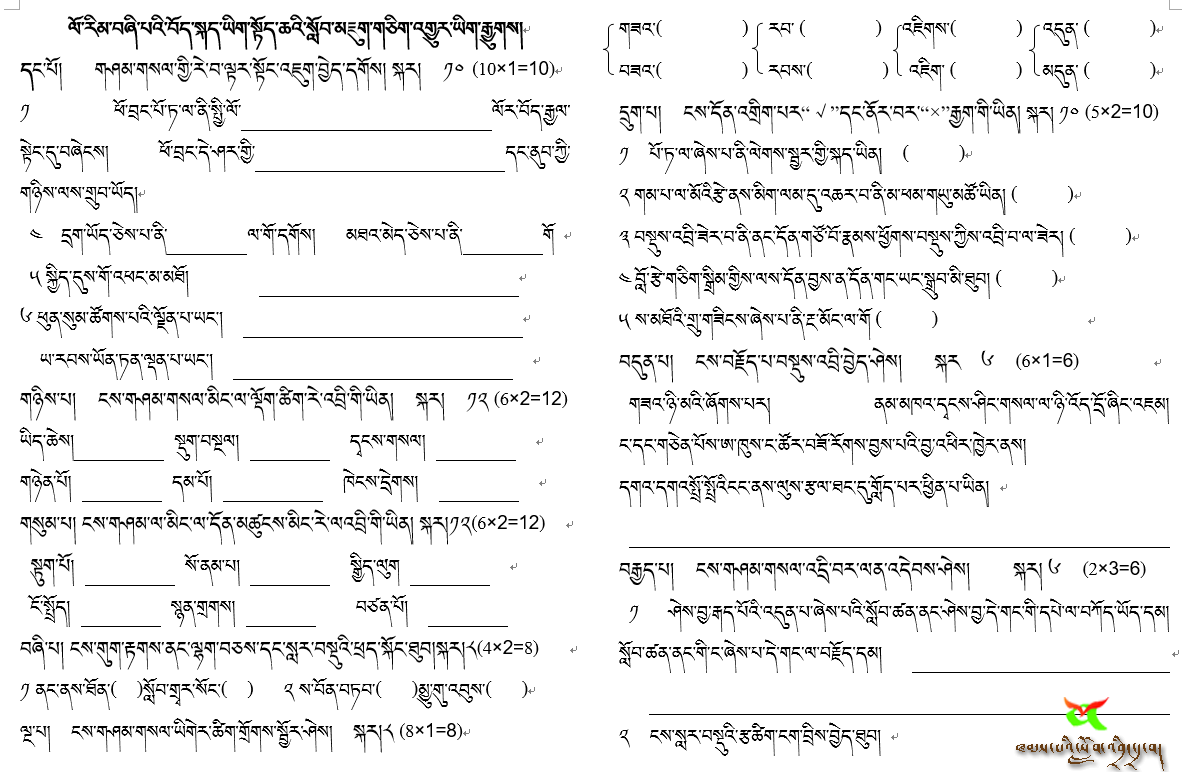 ལོ་རིམ་བཞི་པའི་བོད་སྐད་ཡིག་སྟོད་ཆའི་སློབ་མཇུག་གཅིག་འགྱུར་ཡིག་རྒྱུགས།
དང་པོ། གཤམ་གསལ་གྱི་རེ་བ་ལྟར་སྟོང་འཇུག་བྱེད་དགོས། སྐར། ༡༠ (10×1=10)
༡ ཕོ་བྲང་པོ་ཏ་ལ་ནི་སྤྱི་ལོ་ ལོར་བོད་རྒྱལ་
སྟེང་དུ་བཞེངས། ཕོ་བྲང་དེ་ཤར་གྱི་ དང་ནུབ་ཀྱི་
གཉིས་ལས་གྲུབ་ཡོད།
༤ དྲག་ཡོད་ཅེས་པ་ནི་ ལ་གོ་དགོས། མཐའ་མེད་ཅེས་པ་ནི་ གོ
༥ སྐྱིད་དུས་གོ་འཕང་མ་མཐོ།
༦ ཕུན་སུམ་ཚོགས་པའི་ལྗོན་པ་ཡང་།
ཡ་རབས་ཡོན་ཏན་ལྡན་པ་ཡང་།
གཉིས་པ། ངས་གཤམ་གསལ་མིང་ལ་ལྡོག་ཚིག་རེ་འབྲི་གི་ཡིན། སྐར། ༡༢ (6×2=12)
ཡིད་ཆེས། སྡུག་བསྔལ། དྭངས་གསལ།
གཉེན་པོ། དམ་པོ། ཁེངས་དྲེགས།
གསུམ་པ། ངས་གཤམ་ལ་མིང་ལ་དོན་མཚུངས་མིང་རེ་ལ་འབྲི་གི་ཡིན། སྐར།༡༢(6×2=12)
སྟུག་པོ། སོ་ནམ་པ། སྒྱིད་ལུག
ངོ་སྤྲོད། སྙན་གྲགས། བཙན་པོ།
བཞི་པ། ངས་གུག་རྟགས་ནང་ལྷག་བཅས་དང་སླར་བསྡུའི་ཕྲད་སྐོང་ཐུབ།སྐར།༨(4×2=8)
༡ ནང་ནས་ཐོན་( )སློབ་གྲྭར་སོང་( ) ༢ ས་བོན་བཏབ་( )མྱུ་གུ་འབུས་( )
ལྔ་པ། ངས་གཤམ་གསལ་ཡིགེར་ཚིག་གྲོགས་སྦྱོར་ཤེས། སྐར།༨ (8×1=8)
གཟའ་( ) རབ་ ( ) འཇིགས་( ) འདུན་ ( )
བཟའ་( ) རབས་( ) འཇིག་ ( ) མདུན་ ( )
དྲུག་པ། ངས་དོན་འགྲིག་པར་“ √ ”དང་ནོར་བར་“×”རྒྱག་གི་ཡིན། སྐར། ༡༠ (5×2=10)
༡ པོ་ཏ་ལ་ཞེས་པ་ནི་ལེགས་སྦྱར་གྱི་སྐད་ཡིན། ( )
༢ གམ་པ་ལ་མོའི་རྩེ་ནས་མིག་ལམ་དུ་འཆར་བ་ནི་མ་ཕམ་གཡུ་མཚོ་ཡིན། ( )
༣ བསྡུས་འབྲི་ཟེར་བ་ནི་ནང་དོན་གཙོ་བོ་རྣམས་ཕྱོགས་བསྡུས་ཀྱིས་འབྲི་བ་ལ་ཟེར། ( )
༤ བློ་རྩེ་གཅིག་སྒྲིམ་གྱིས་ལས་དོན་བྱས་ན་དོན་གང་ཡང་སྒྲུབ་མི་ཐུབ། ( )
༥ ས་མཐོའི་གྲུ་གཟིངས་ཞེས་པ་ནི་རྔ་མོང་ལ་གོ ( )
བདུན་པ། ངས་བརྗོད་པ་བསྡུས་འབྲི་བྱེད་ཤེས། སྐར ༦ (6×1=6)
གཟའ་ཉི་མའི་ཞོགས་པར། ནམ་མཁའ་དྭངས་ཤིང་གསལ་ལ་ཉི་འོད་དྲོ་ཞིང་འཇམ།
ང་དང་གཅེན་པོས་ཨ་ཁུས་ང་ཚོར་བཟོ་རོགས་བྱས་པའི་བྱ་འཕིར་ཁྱེར་ནས།
དགའ་དགའ་སྤྲོ་སྤྲོའི་ངང་ནས་ལུས་རྩལ་ཐང་དུ་གློད་པར་ཕྱིན་པ་ཡིན།
བརྒྱད་པ། ངས་གཤམ་གསལ་འདྲི་བར་ལན་འདེབས་ཤེས། སྐར། ༦ (2×3=6)
༡ ཤེས་བྱ་རྒད་པོའི་འདུན་པ་ཞེས་པའི་སློབ་ཚན་ནང་ཤེས་བྱ་དེ་གང་གི་དཔེ་ལ་བཀོད་ཡོད་དམ།
སློབ་ཚན་ནང་གི་ང་ཞེས་པ་དེ་གང་ལ་བརྗོད་དམ།
༢ ངས་སླར་བསྡུའི་རྩ་ཚིག་ངག་བྲིས་བྱེད་ཐུབ།